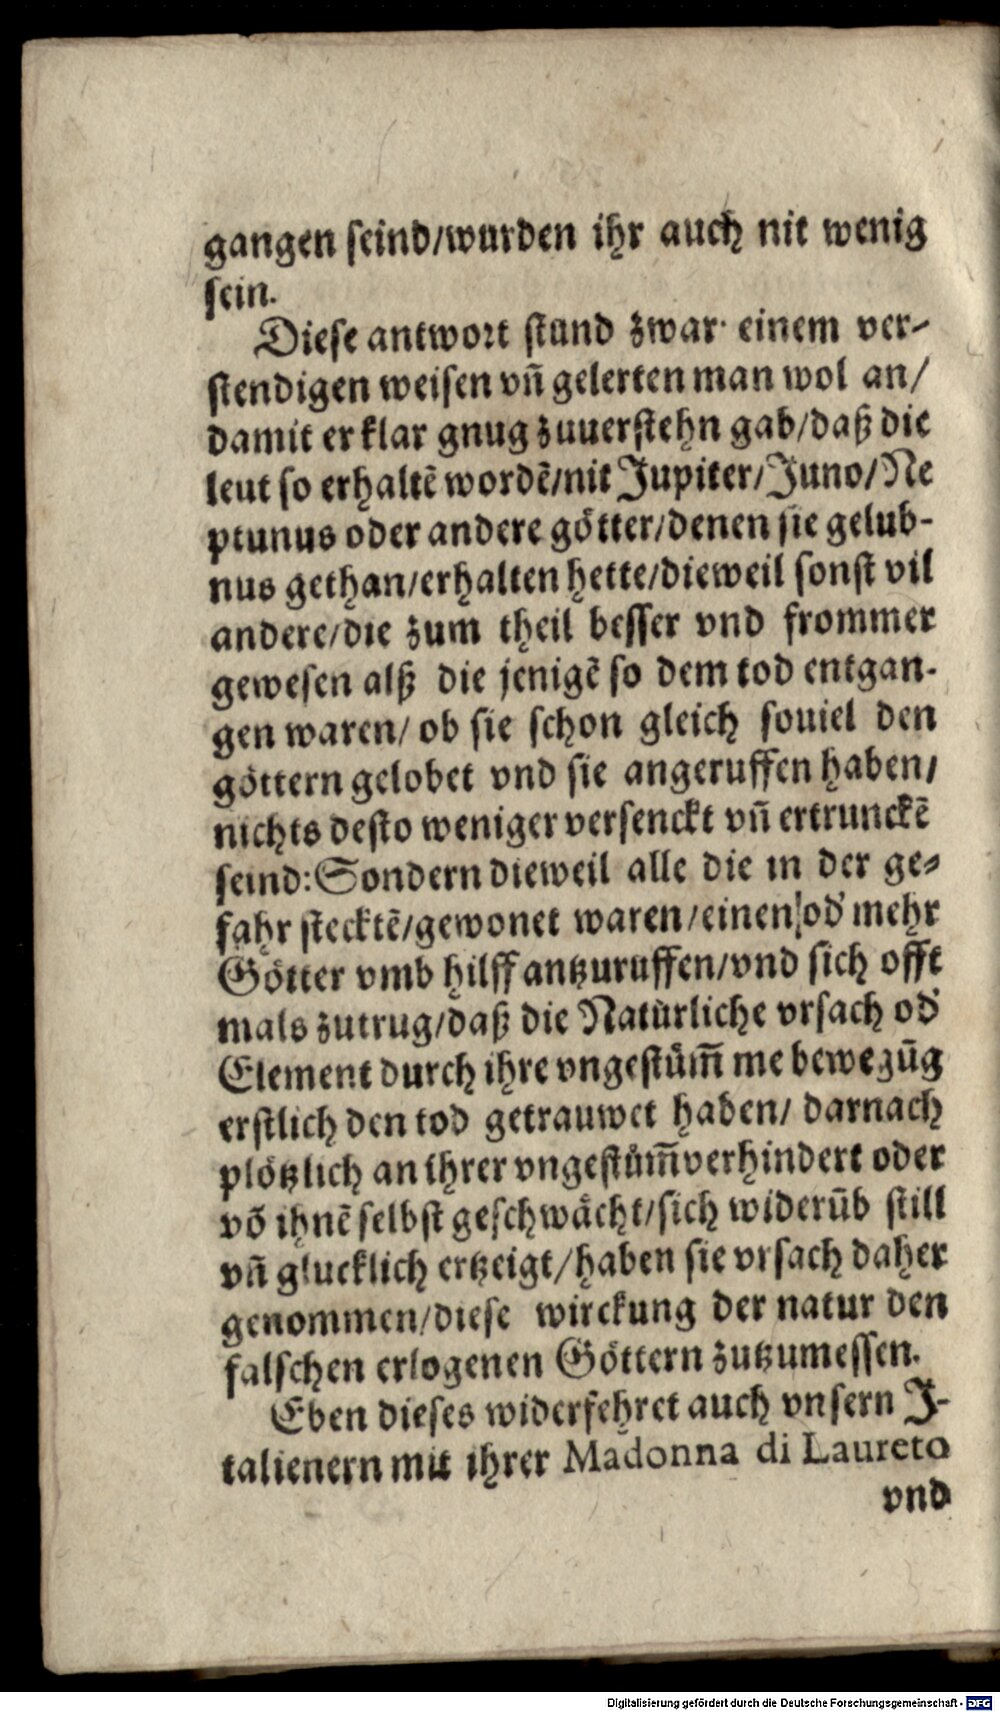 gangen seind/wurden ihr auch nit wenig
sein.
Diese antwort stund zwar einem ver-
stendigen weisen vñ gelerten man wol an/
damit er klar gnug zuuerstehn gab/daß die
leut so erhaltē wordē/nit Jupiter/Juno/Ne
ptunus oder andere götter/denen sie gelub-
nus gethan/erhalten hette/dieweil sonst vil
andere/die zum theil besser vnd frommer
gewesen alß die jenigē so dem tod entgan-
gen waren/ ob sie schon gleich souiel den
göttern gelobet vnd sie angeruffen haben/
nichts desto weniger versenckt vñ ertrunckē
seind: Sondern dieweil alle die in der ge-
fahr stecktē/gewonet waren/einen od' mehr
Götter vmb hilff antzuruffen/vnd sich offt
mals zutrug/daß die Natürliche vrsach od'
Element durch ihre vngestüm̃ me bewegūg
erstlich den tod getrauwet haben/ darnach
plötzlich an ihrer vngestüm̃ verhindert oder
vō ihnē selbst geschwächt/sich widerūb still
vñ glucklich ertzeigt/haben sie vrsach daher
genommen/diese wirckung der natur den
falschen erlogenen Göttern zutzumessen.
Eben dieses widerfehret auch vnsern J-
talienern mit ihrer Madonna di Laureto
vnd
Digitalisierung gefördert durch die Deutsche Forschungsgemeinschaft - DFG